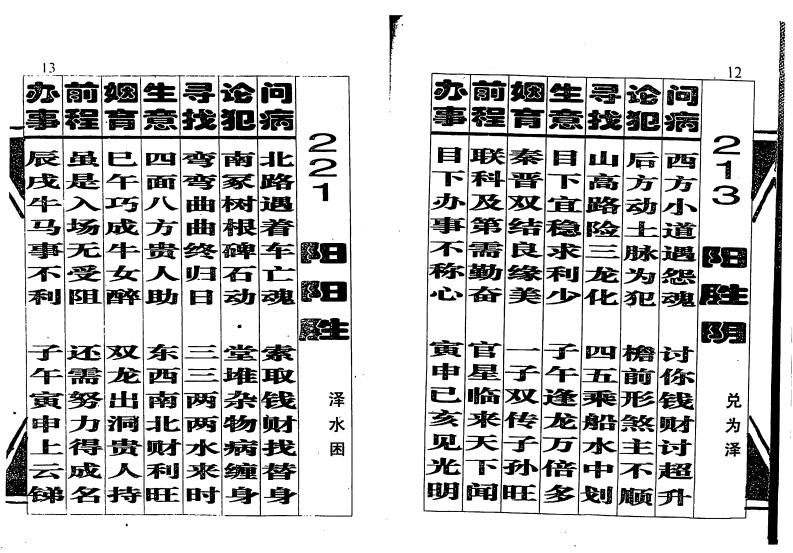 12
213 阳胜阴 兑为泽
问病 西方小道遇怨魂 讨你钱财讨超升
论犯 后方动土脉为犯 檐前形煞主不顺
寻找 山高路险三龙化 四五乘船水中划
生意 目下宜稳求利少 子午逢龙万倍多
姻育 秦晋双结良缘美 一子双传子孙旺
前程 联科及第需勤奋 官星临来天下闻
办事 目下办事不称心 寅申已亥见光明
13
221 阳阳胜 泽水困
问病 北路遇着车亡魂 索取钱财找替身
论犯 南冢树根碑石动 堂堆杂物病缠身
寻找 弯弯曲曲终归日 三三两两水来时
生意 四面八方贵人助 东西南北财利旺
姻育 巳午巧成牛女醉 双龙出洞贵人持
前程 虽是入场无受阻 还需努力得成名
办事 辰戌牛马事不利 子午寅申上云锑